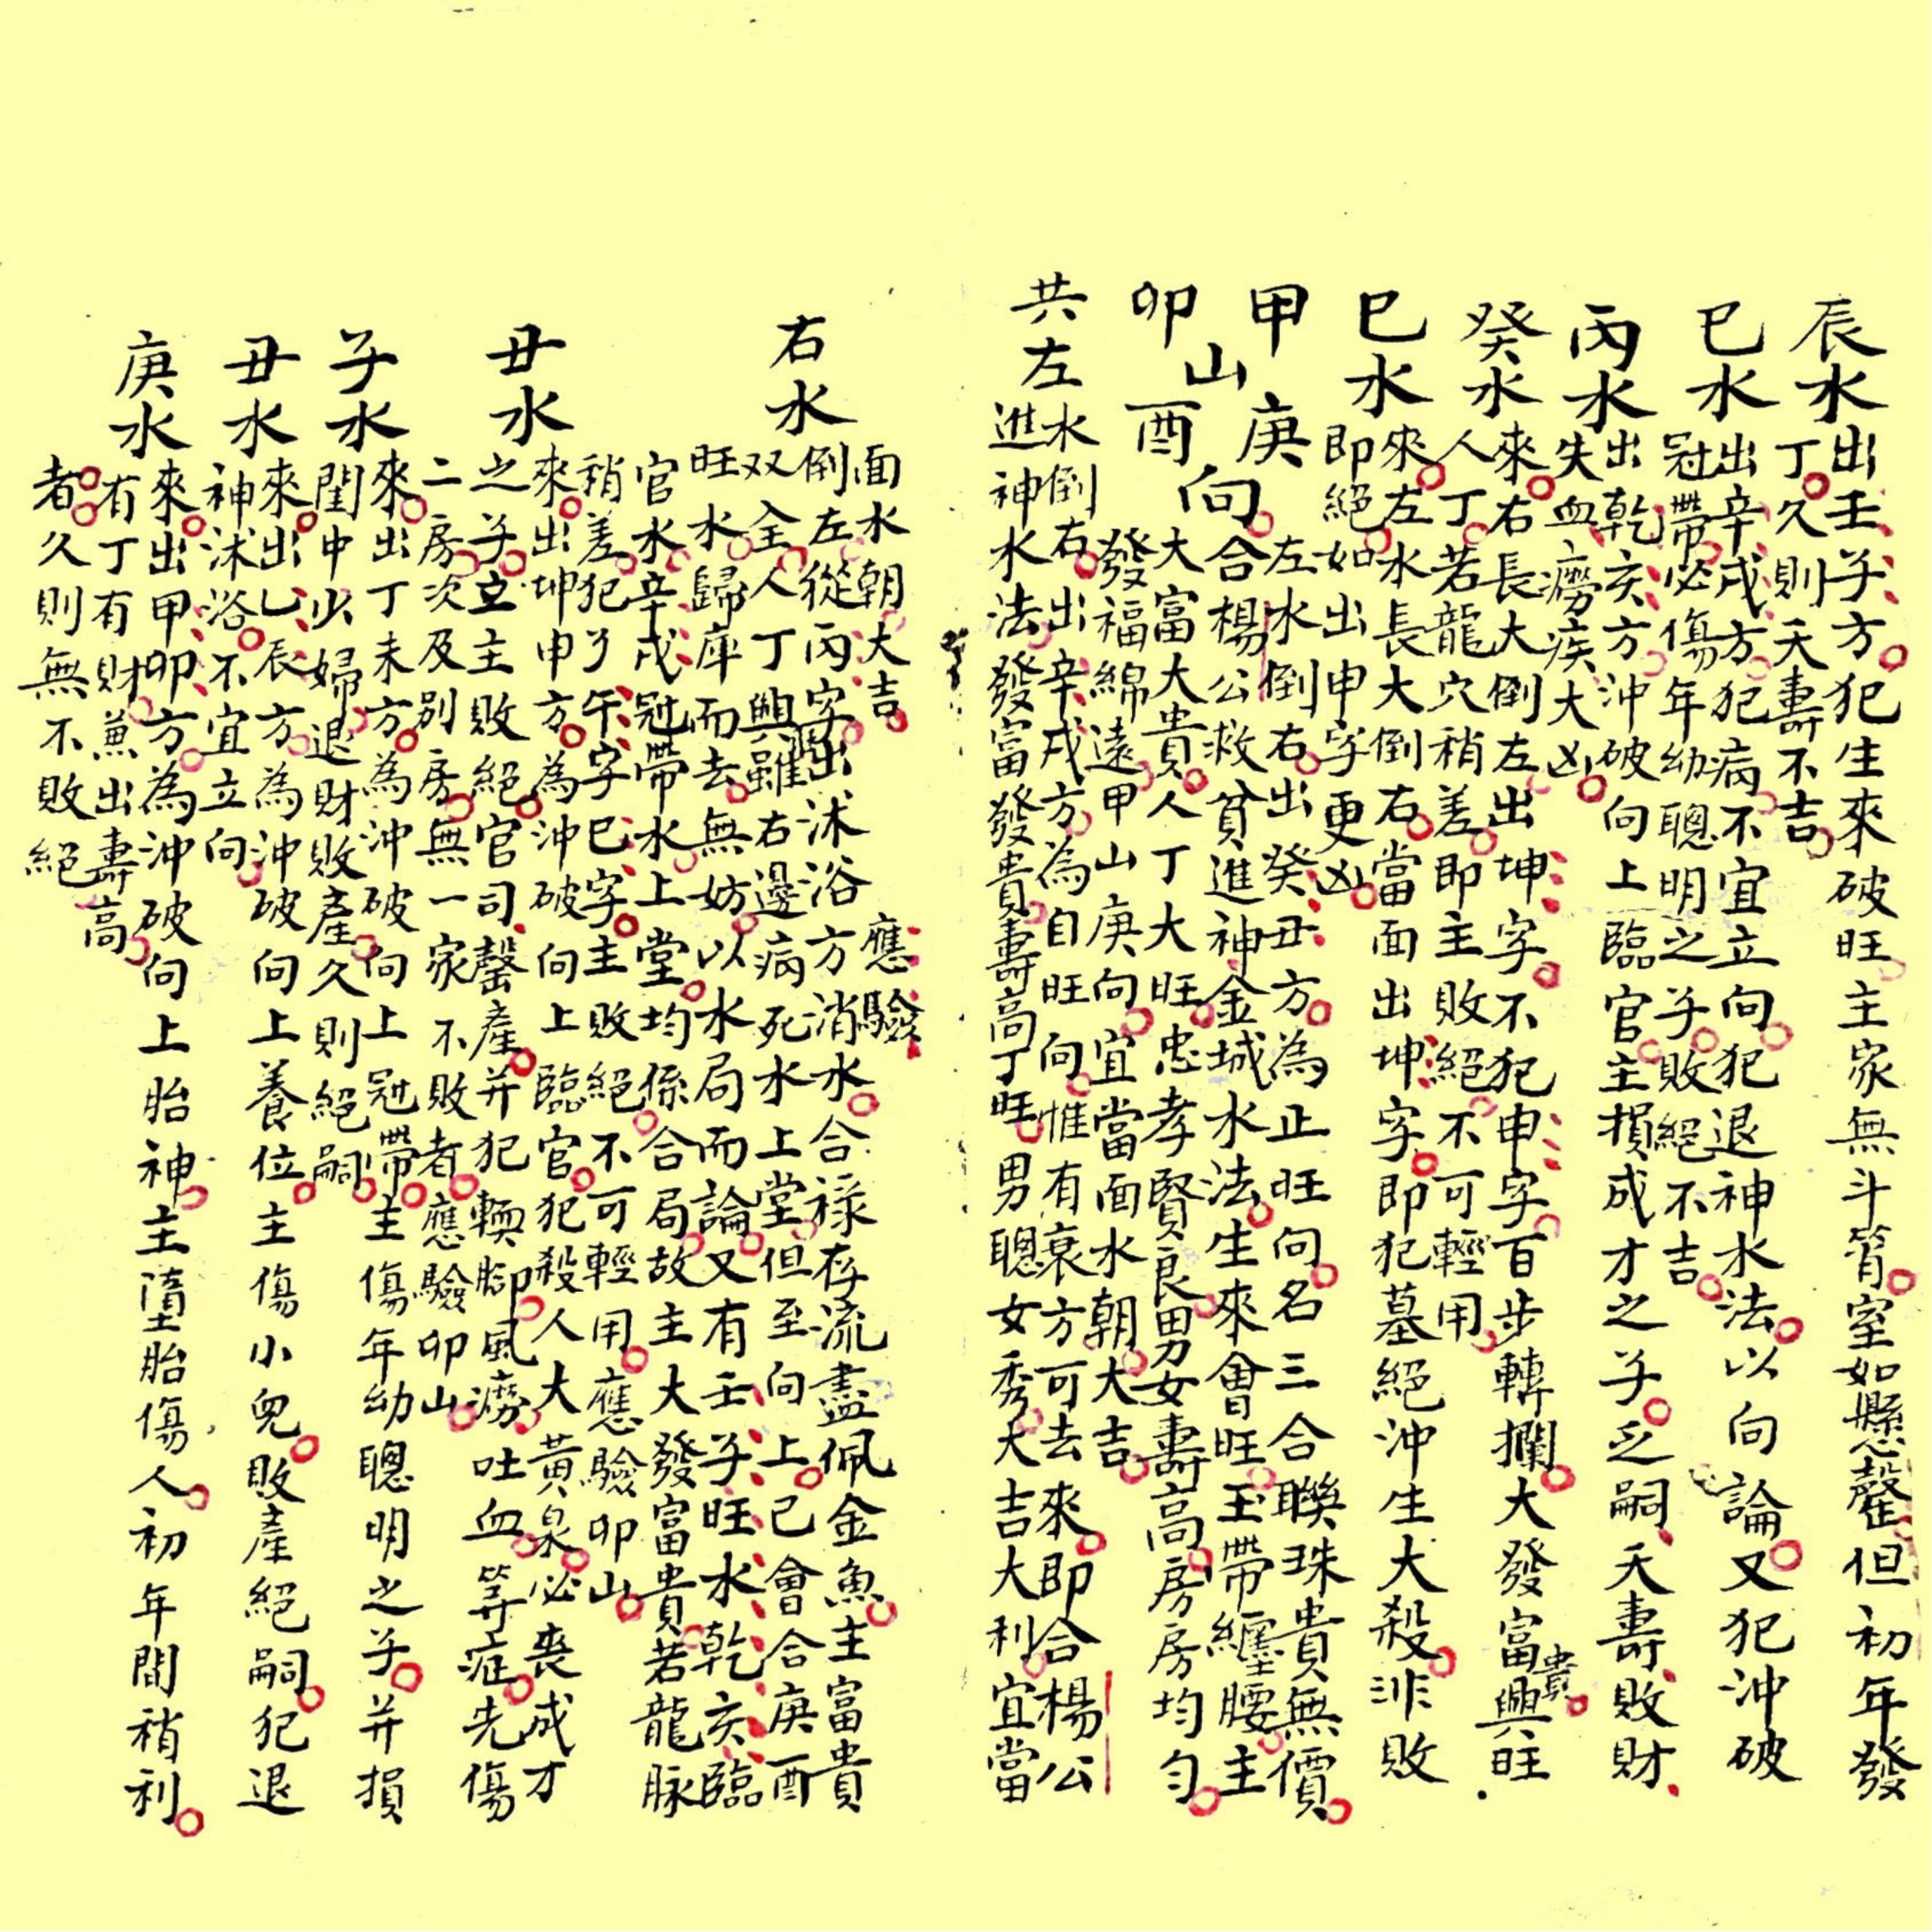 辰水出壬子方犯生來破旺主家無斗筲室如懸罄但初年發
丁久則夭壽不吉
巳水出辛戌方犯病不宜立向犯退神水法以向論又犯冲破
冠帶必傷年幼聰明之子敗絕不吉
丙水出乾亥方冲破向上臨官主損成才之子乏嗣夭壽敗財
失血癆疾大凶
癸水來右長大倒左出坤字不犯申字百步轉攔大發富貴興旺
人丁若龍穴稍差即主敗絕不可輕用
巳水來左水長大倒右當面出坤字即犯墓絕冲生大殺非敗
即絕如出申字更凶
甲山庚向左水倒右出癸丑方為正旺向名三合聯珠貴無價
卯山酉向合楊公救貧進神金城水法生來會旺玉帶纏腰主
大富大貴人丁大旺忠孝賢良男女壽高房房均勻
發福綿遠甲山庚向宜當面水朝大吉
共左水倒右出辛戌方為自旺向惟有衰方可去來即合楊公
進神水法發富發貴壽高丁旺男聰女秀大吉大利宜當
面水朝大吉 應驗
右水倒左從丙字出沐浴方消水合祿存流盡佩金魚主富貴
双全人丁興雖右邊病死水上堂但至向上已會合庚酉
旺水歸庫而去無妨以水局而論又有壬子旺水乾亥臨
官水辛戌冠帶水上堂均係合局故主大發富貴若龍脉
稍差犯了午字巳字主敗絕不可輕用應驗卯山
丑水來出坤申方為冲破向上臨官犯殺人大黃泉必喪成才
之子立主敗絕官司罄產并犯輭腳風癆吐血等症先傷
二房次及別房無一家不敗者應驗卯山
子水來出丁未方為冲破向上冠帶主傷年幼聰明之子并損
閨中少婦退財敗產久則絕嗣
丑水來出乙辰方為冲破向上養位主傷小兒敗產絕嗣犯退
神沐浴不宜立向
庚水來出甲卯方為冲破向上胎神主墮胎傷人初年間稍利
有丁有財兼出壽高
者久則無不敗絕